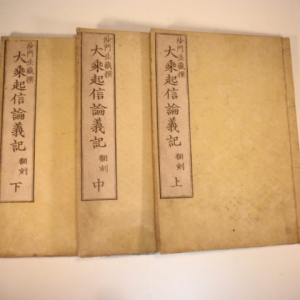 沙門法藏撰
大乘起信論義記 翻刻 上
沙門法藏撰
大乘起信論義記 翻刻 中
沙門法藏撰
大乘起信論義記 翻刻 下